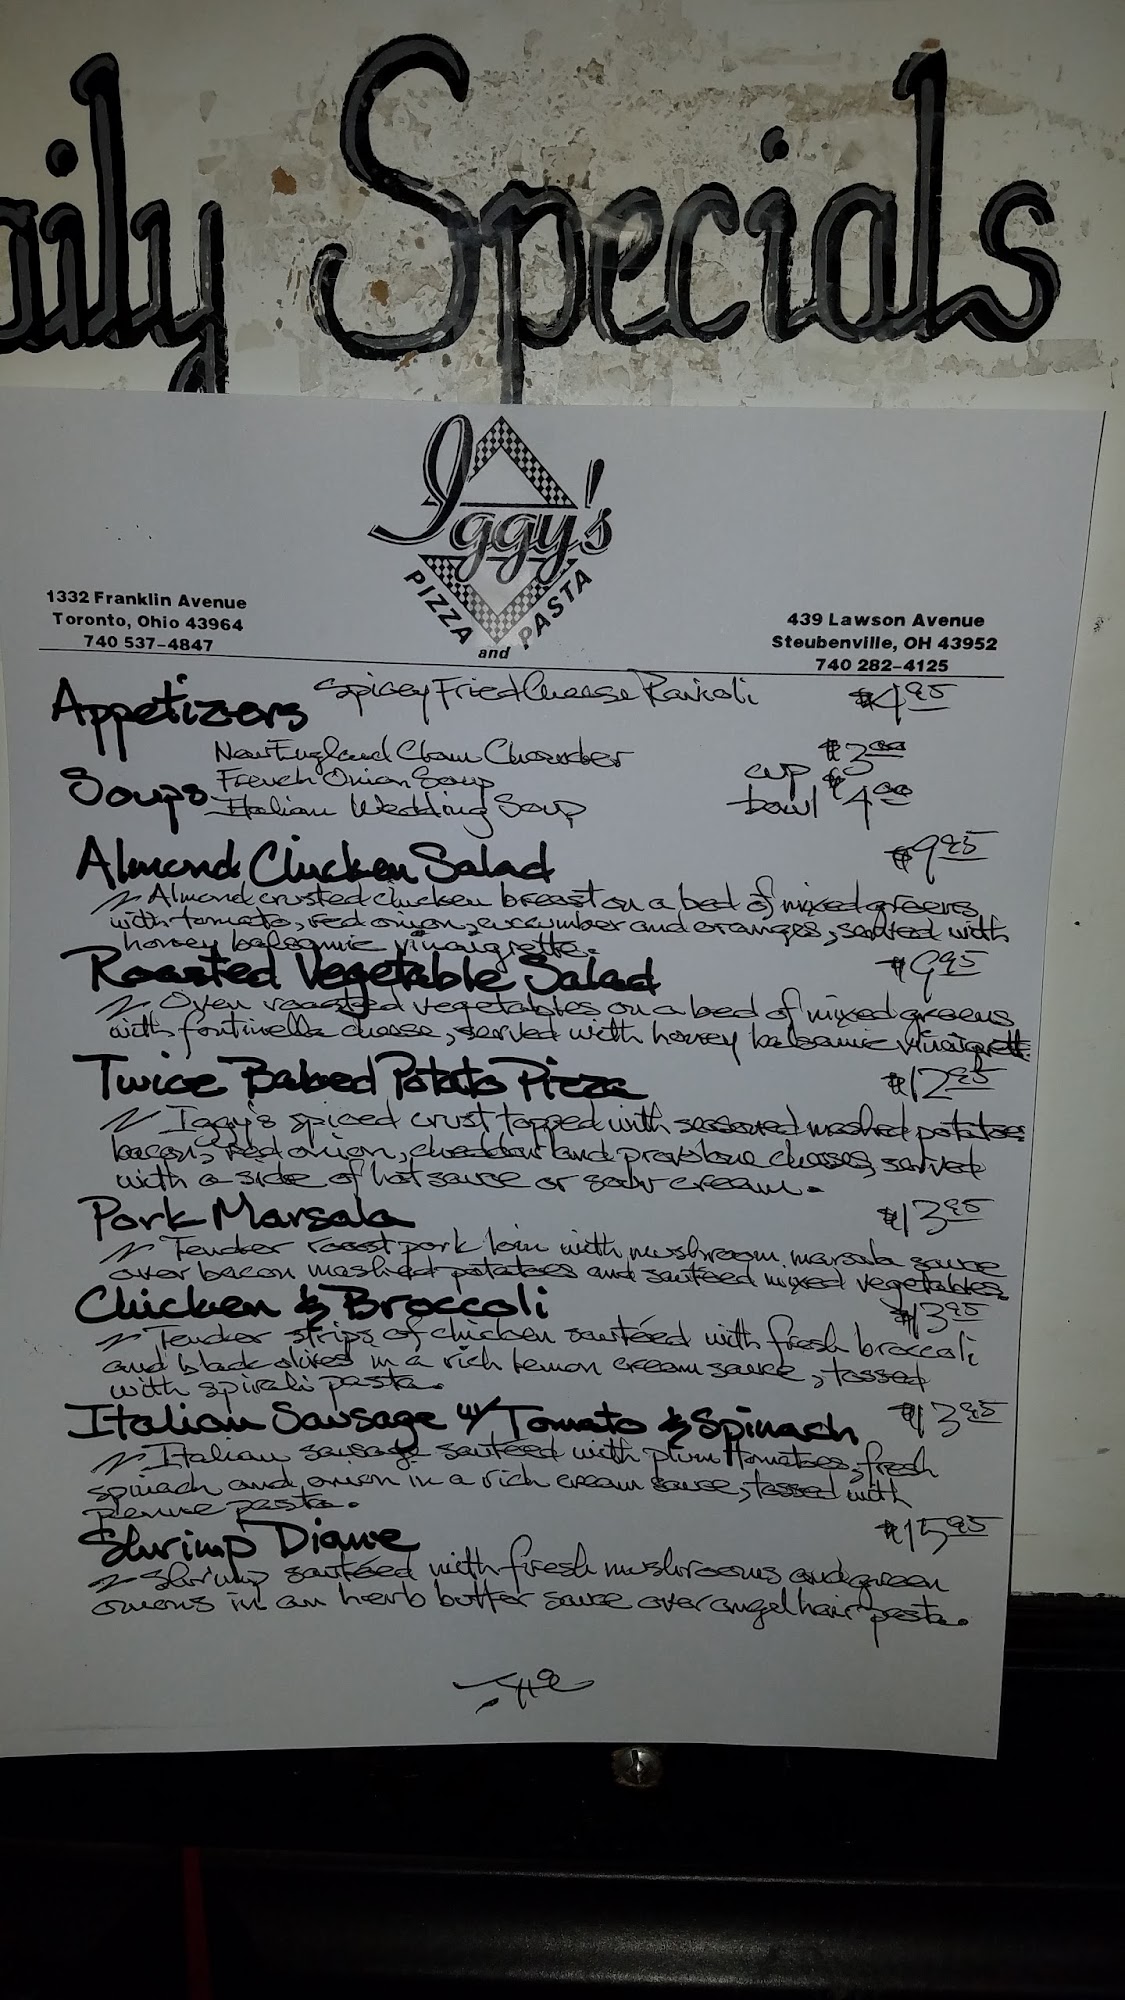 aily Specials
Iggy's
PIZZA and PASTA
1332 Franklin Avenue
Toronto, Ohio 43964
740 537-4847
439 Lawson Avenue
Steubenville, OH 43952
740 282-4125
Appetizers Spicey Fried Cheese Ravioli $4.95
New England Clam Chowder
Soups French Onion Soup cup $3.00
Italian Wedding Soup bowl $4.00
Almond Chicken Salad $9.95
Almond crusted chicken breast on a bed of mixed greens
with tomato, red onion, cucumber and oranges, served with
honey balsamic vinaigrette.
Roasted Vegetable Salad $9.95
Oven roasted vegetables on a bed of mixed greens
with fontinella cheese, served with honey balsamic vinaigrett.
Twice Baked Potato Pizza $12.95
Iggy's spiced crust topped with seasoned mashed potatoes
bacon, red onion, cheddar and provolone cheeses, served
with a side of hot sauce or sour cream.
Pork Marsala $13.95
Tender roast pork loin with mushroom marsala sauce
over bacon mashed potatoes and sautéed mixed vegetables.
Chicken & Broccoli $13.95
Tender strips of chicken sautéed with fresh broccoli
and black olives in a rich lemon cream sauce, tossed
with spirali pasta.
Italian Sausage w/ Tomato & Spinach $13.95
Italian sausage sautéed with plum tomatoes, fresh
spinach and onion in a rich cream sauce, tossed with
penne pasta.
Shrimp Diane $15.95
Shrimp sautéed with fresh mushrooms and green
onions in an herb butter sauce over angel hair pasta.